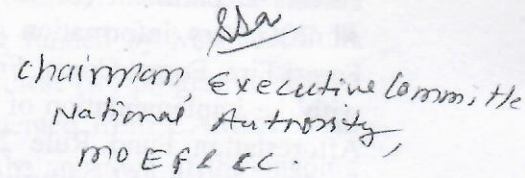 Chairman, Executive Committe
National Authority,
MOEF&CC.